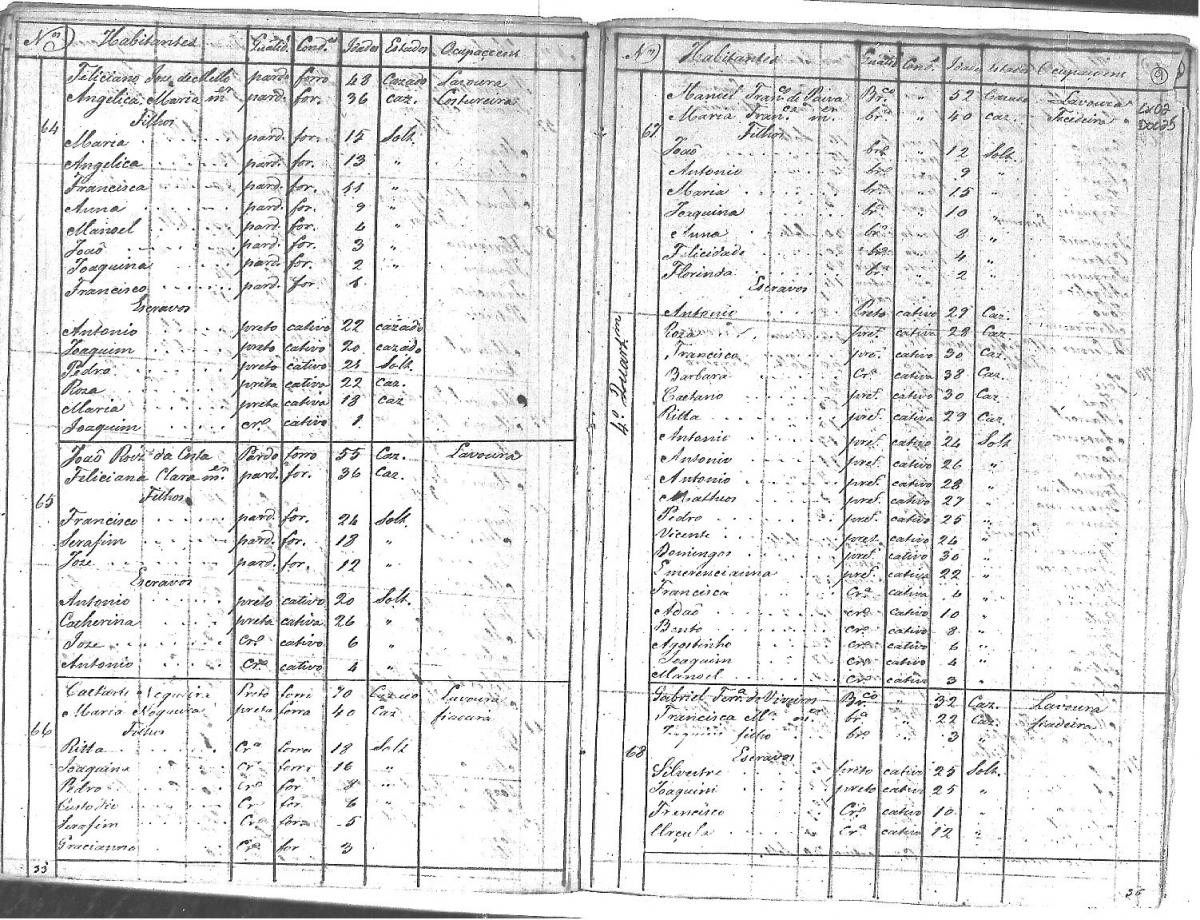 Nos Habitantes Qualid.e Cond.es Idades Estados Ocupaçoens
Feliciano Joze de Mello pard. forro 48 Cazado Lavoura
Angelica Maria m.er pard. for. 36 caz. Costureira
Filhos
64
Maria pard. for. 15 Solt.
Angelica pard. for. 13 "
Francisca pard. for. 11 "
Anna pard. for. 9 "
Manoel pard. for. 4 "
João pard. for. 3 "
Joaquina pard. for. 2 "
Francisco pard. for. 1
Escravos
Antonio preto cativo 22 cazado
Joaquim preto cativo 20 cazado
Pedro preto cativo 21 Solt.
Roza preta cativa 22 Caz.
Maria preta cativa 18 caz
Joaquim Cro. cativo 1
João Roiz da Costa Pardo forro 55 Caz. Lavoura
Feliciana Clara m.er pard. for. 36 Caz.
Filhos
65
Francisco pard. for. 24 Solt.
Serafim pard. for. 18 "
Joze pard. for. 12 "
Escravos
Antonio preto cativo 20 Solt.
Catherina preta cativa 26 "
Joze Cro. cativo 6 "
Antonio Cro. cativo 4 "
Preto forro Lavoura
Maria Nogueira preta forra 40 Caz
66
Filhos
Ritta Cra. forra 18 Solt
Joaquim Cro. forro 16 "
Pedro Cro for 8 "
Custodio Cr. for. 6 "
Serafim Cro for. 5
Gracianno Cro. for 3
33
Nos Habitantes Qualid. Cond. Idade Estado Ocupaçoens
9
CX02
DOC25
Manoel Fran.co de Paiva Br.co " 52 Cazado Lavoura
Maria Fran.ca m.er br.a " 40 caz. Tecedeira
67
Filhos
João br.o " 12 Solt.
Antonio br.o " 9 "
Maria br.a " 15
Joaquina br.a " 10 "
Anna br.a " 8 "
Felicidade br.a " 4 "
Florinda br. " 2 "
Escravos
4.o Quart.am
Antonio Preto cativo 29 Caz.
Roza pret. cativa 28 Caz
Francisco pret. cativo 30 Caz
Barbara Cra. cativa 38 Caz.
Caetano pret. cativo 30 Caz
Ritta pret. cativa 29 Caz.
Antonio pret. cativo 24 Solt
Antonio pret. cativo 26 "
Antonio pret. cativo 28 "
Matheos pret. cativo 27 "
Pedro pret. cativo 25 "
Vicente pret. cativo 24 "
Domingos pret. cativo 30 "
Emerencianna pret. cativa 22 "
Francisca Cra. cativa 4 "
Adão cro. cativo 10 "
Bento Cro. cativo 8 "
Agostinho Cro. cativo 6 "
Joaquim Cro. cativo 4 "
Manoel Cro. cativo 3 "
Gabriel Br.co " 32 Caz. Lavoura
Francisca M.a m.er br.a " 22 Caz. fiadeira
filho br.o " 3 "
68
Escravos
Silvestre preto cativo 25 Solt.
Joaquim preto cativo 25 "
Francisco Cro. cativo 10 "
Urçula Cra. cativa 12 "